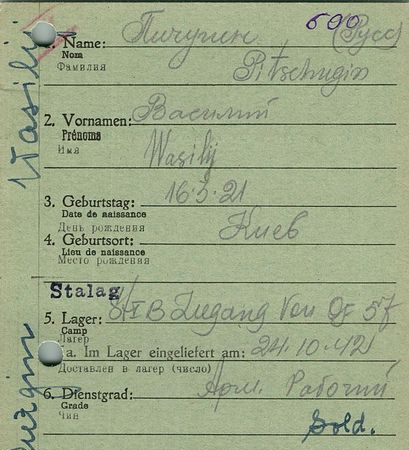 600
1. Name: Пичугин (Русс)
Nom
Фамилия
Pitschugin
2. Vornamen: Василий
Prénoms
Имя
Wasilij
3. Geburtstag: 16.3.21
Date de naissance
День рождения
Киев
4. Geburtsort:
Lieu de naissance
Место рождения
Stalag
5. Lager: XI B Zugang von Of 57
Camp
Лагерь
5a. Im Lager eingeliefert am: 24.10.42
Доставлен в лагерь (число)
6. Dienstgrad: Арм. Рабочий
Grade
Чин
Sold.
Wasilij